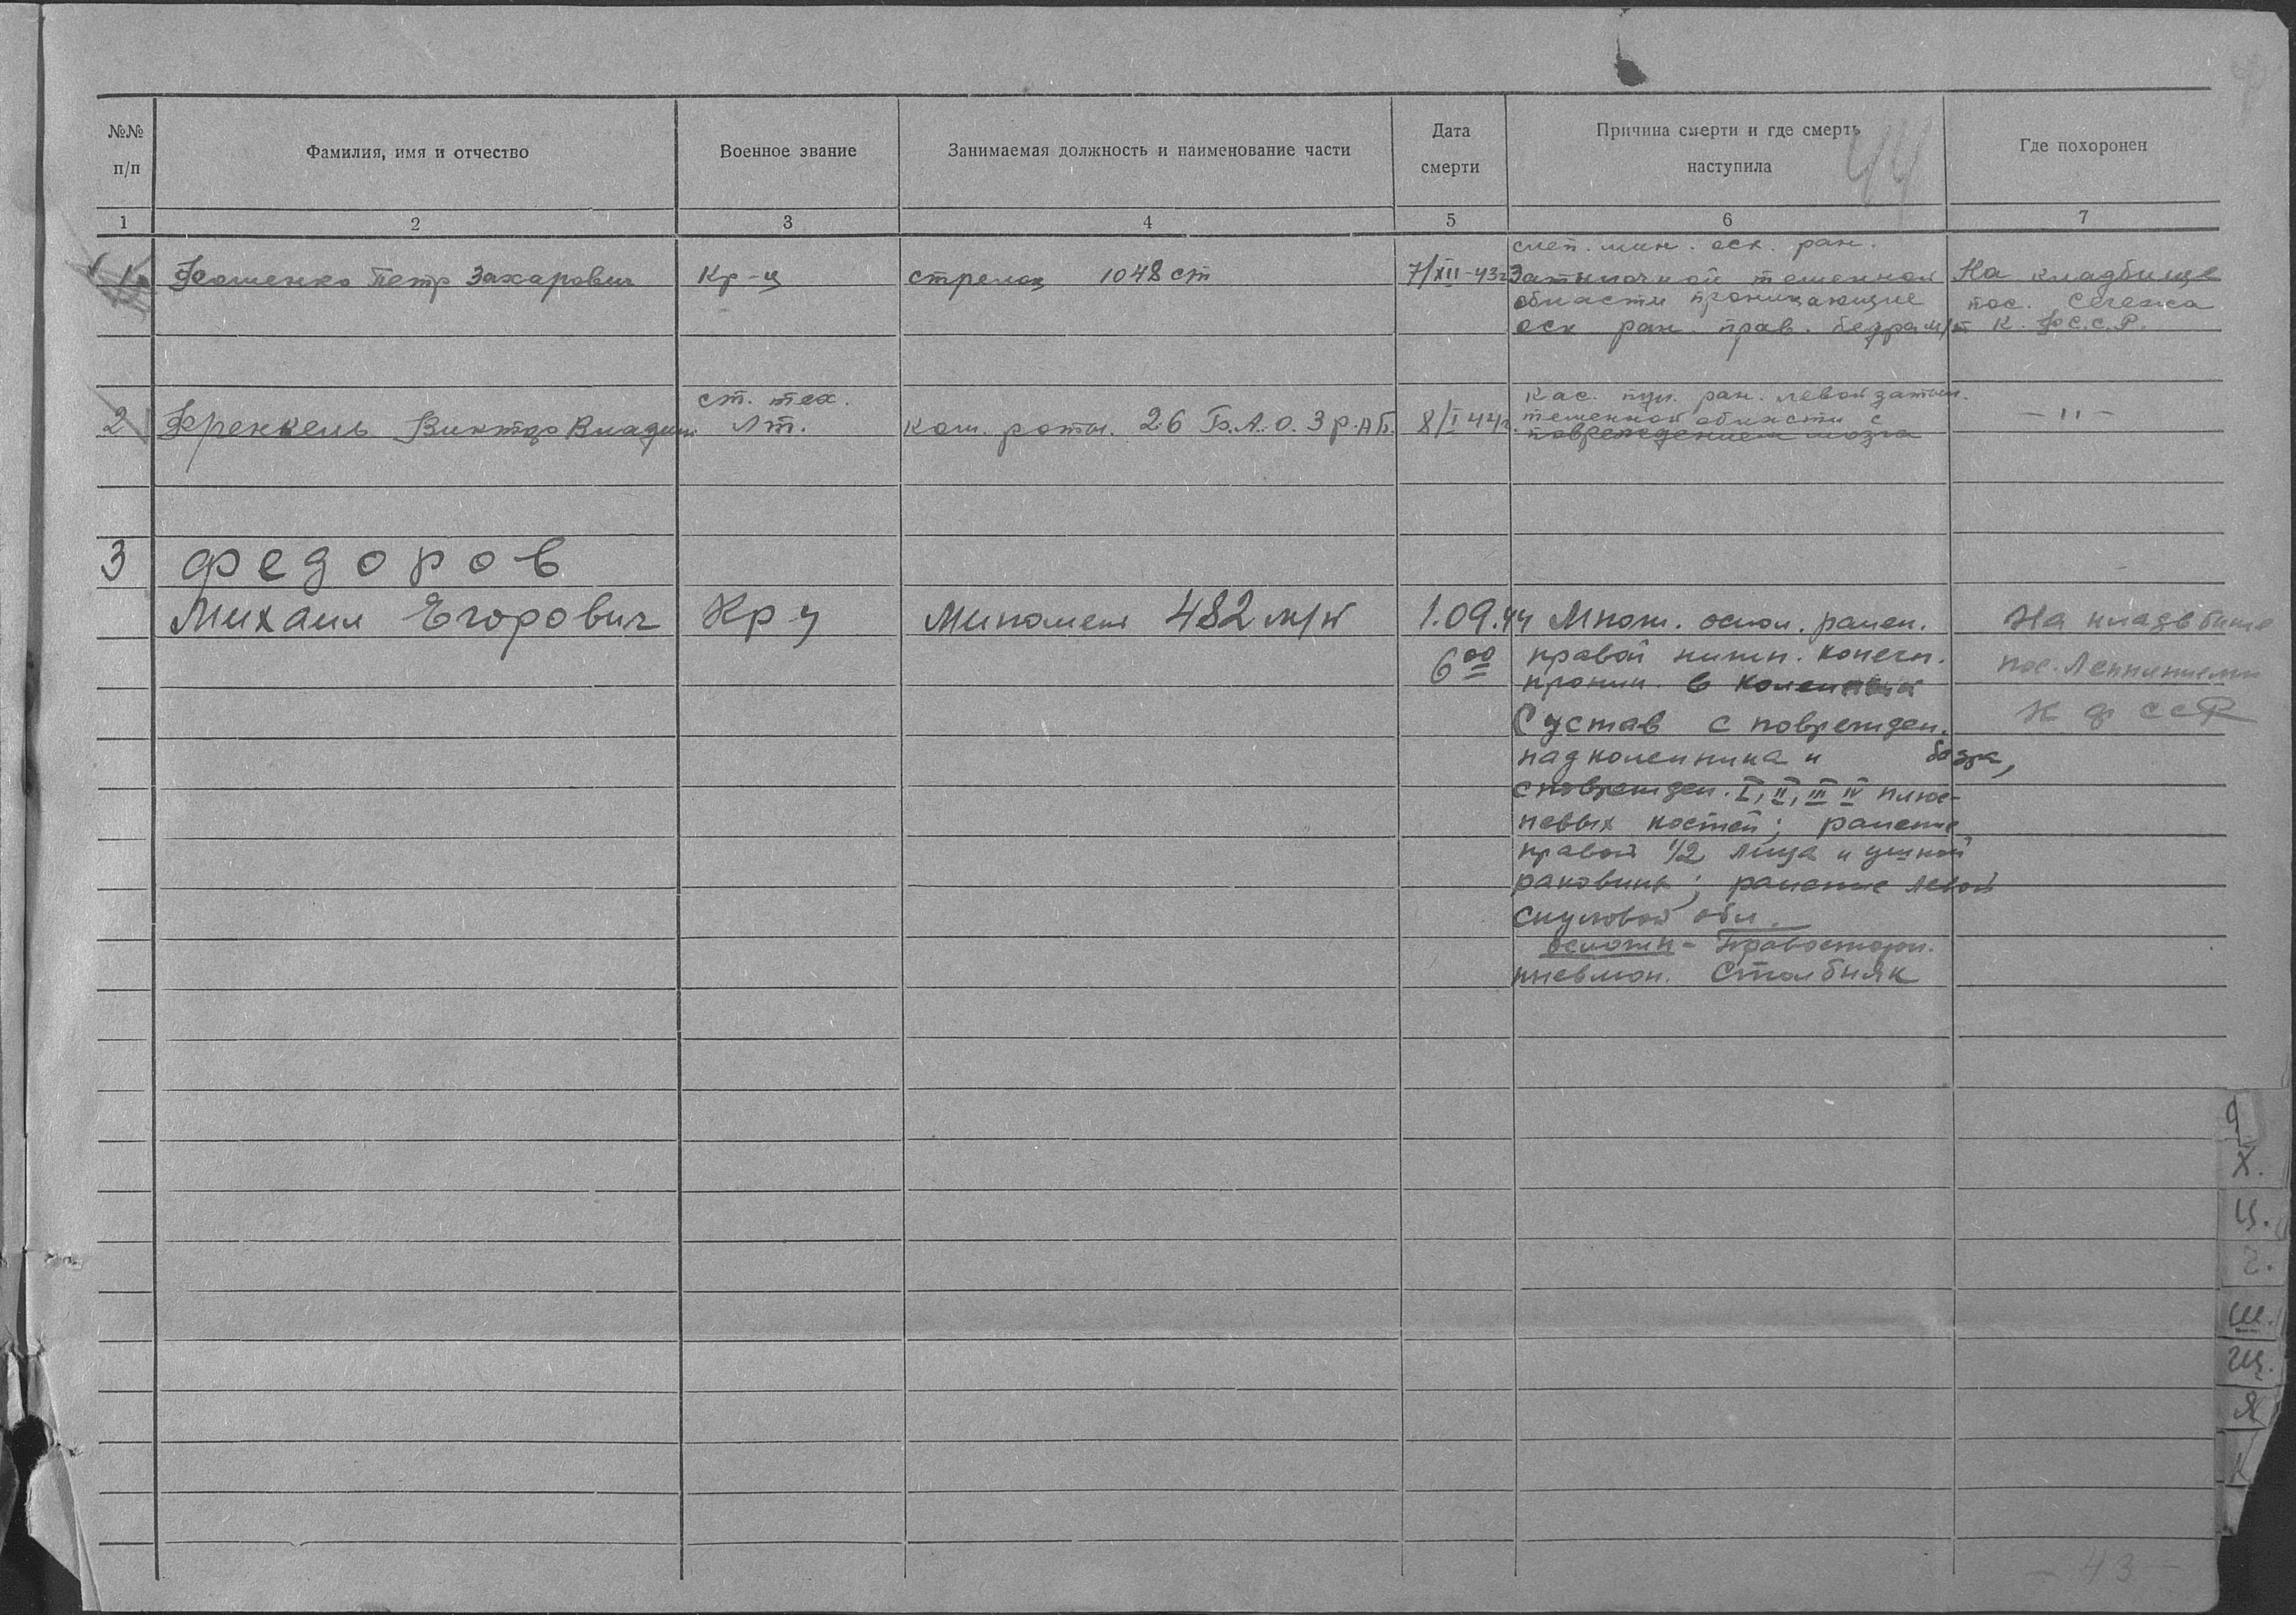 44
№№ п/п
Фамилия, имя и отчество
Военное звание
Занимаемая должность и наименование части
Дата смерти
Причина смерти и где смерть наступила
Где похоронен
1 2 3 4 5 6 7
1 Фоменко Петр Захарович
Кр-ц
стрелок 1048 сп
7/XII-43г
слеп. мин. оск. ран.
Затылочной теменной
области проникающие
оск ран. прав. бедра м/т
На кладбище
пос. Сегежа
К. Ф С.С.Р.
2 Френкель Виктор Владим.
ст. тех.
лт.
ком. роты. 26 Б.А.О. 3 р.АБ.
8/I 44г.
Кас. пул. ран. левой затыл.
теменной области с
повреждением мозга
— " —
3 Федоров
Михаил Егорович
Кр ц
Миномет 482 м/п
1.09.44
6 00
Множ. оскол. ранен.
правой нижн. конечн.
проник. в коленный
Сустав с поврежден.
надколенника и бедра,
с поврежден. I, II, III IV плюс-
невых костей; ранение
правой 1/2 лица и ушной
раковины; ранение левой
скуловой обл.
осложн - Правосторон.
пневмон. Столбняк
На кладбище
пос.
К ф ССР
Х.
Ц.
Ч.
Ш.
Щ.
Я
— 43 —